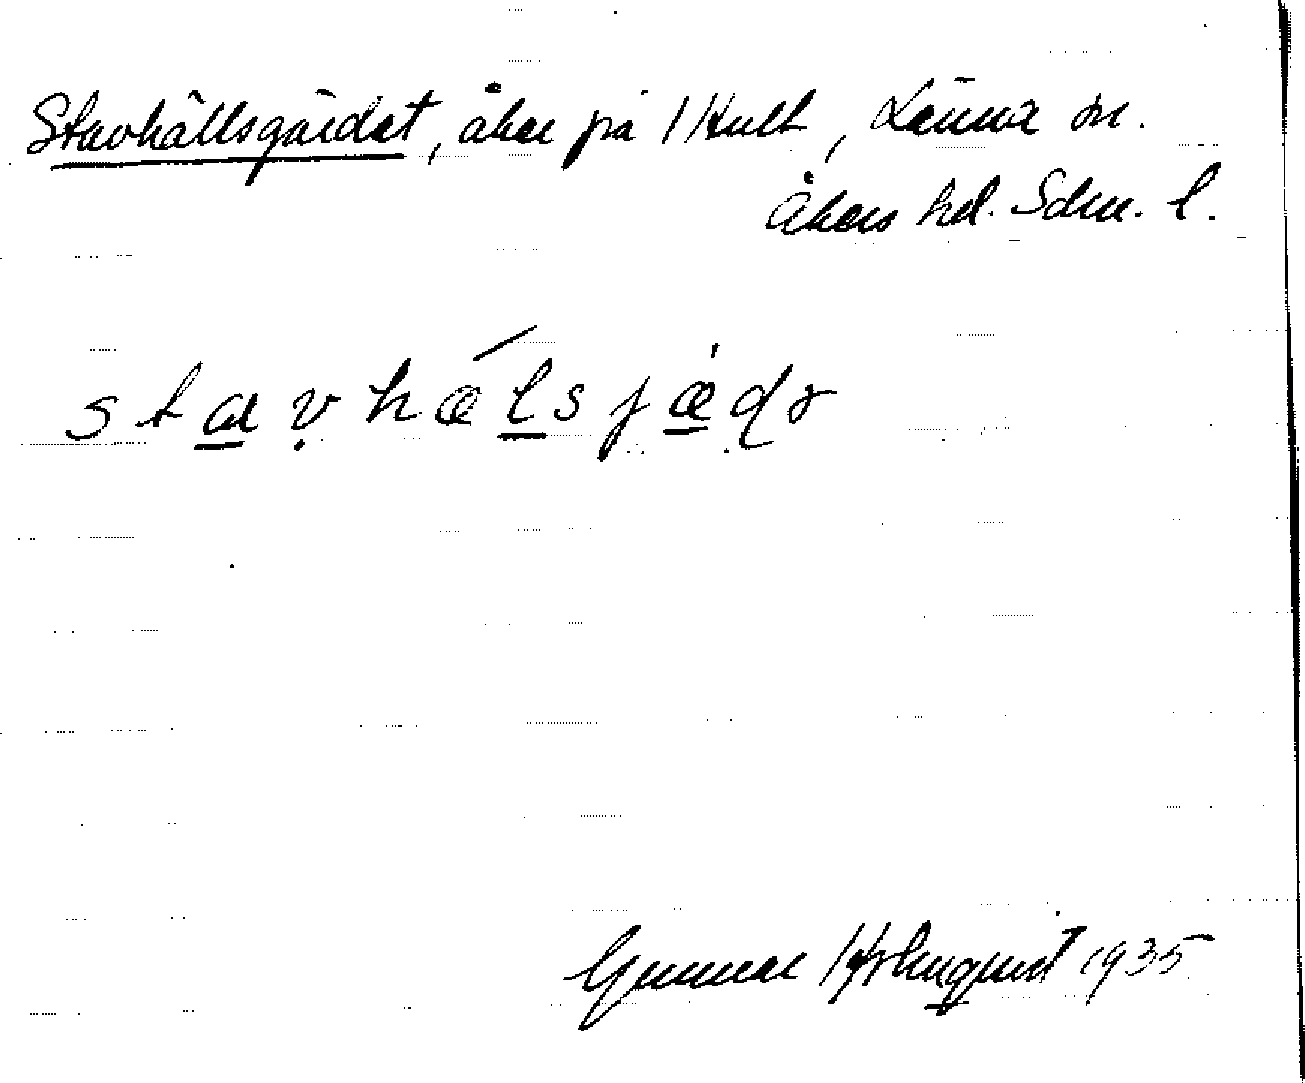 Stavhällsgärdet, åker på Hult, Länna sn.
Åkers hd. Sdm. l.
stavhælsjædə
Gunnar Holmquist 1935